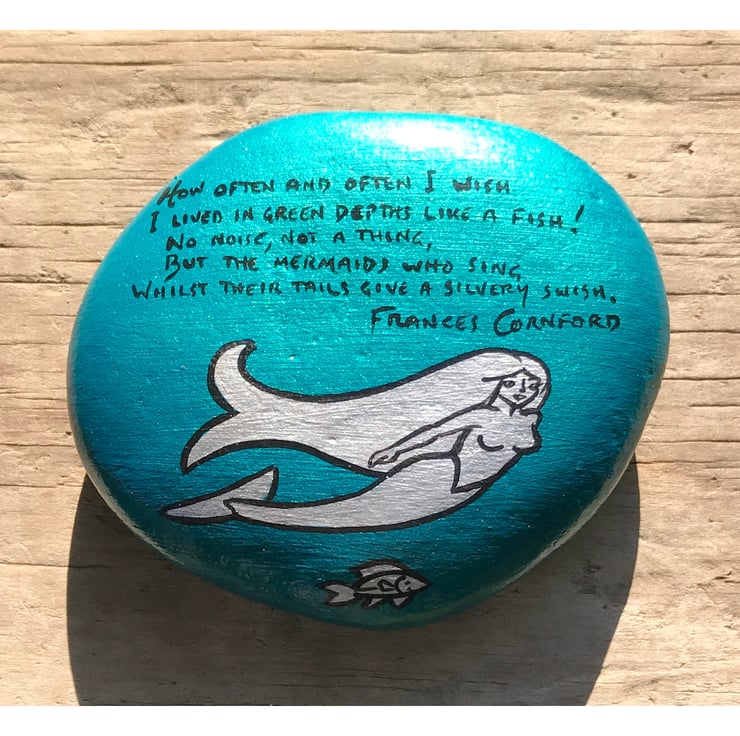 HOW OFTEN AND OFTEN I WISH
I LIVED IN GREEN DEPTHS LIKE A FISH!
NO NOISE, NOT A THING,
BUT THE MERMAIDS WHO SING
WHILST THEIR TAILS GIVE A SILVERY SWISH.
FRANCES CORNFORD